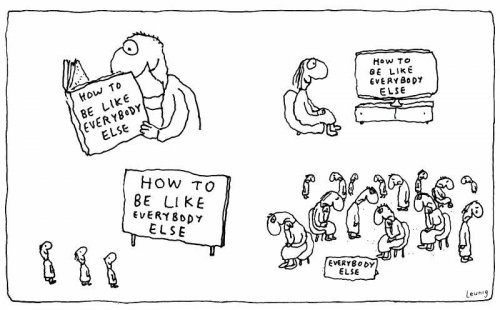 HOW TO
BE LIKE
EVERYBODY
ELSE
HOW TO
BE LIKE
EVERYBODY
ELSE
HOW TO
BE LIKE
EVERYBODY
ELSE
EVERYBODY
ELSE
Leunig